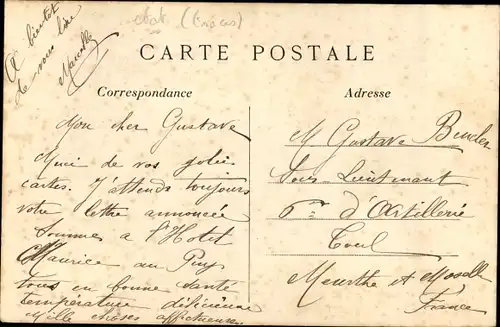 A bientôt
de vous lire
Marcelle
CARTE POSTALE
Correspondance
Adresse
Mon cher Gustave
Merci de vos jolies
cartes. J'attends toujours
votre lettre annoncée
sommes a l'Hotel
Maurice au Puy
tous en bonne santé
température délicieuse
Mille choses affectueuses
M. Gustave
Sous Lieutenant
6me d'Artillerie
Toul
Meurthe et Moselle
France